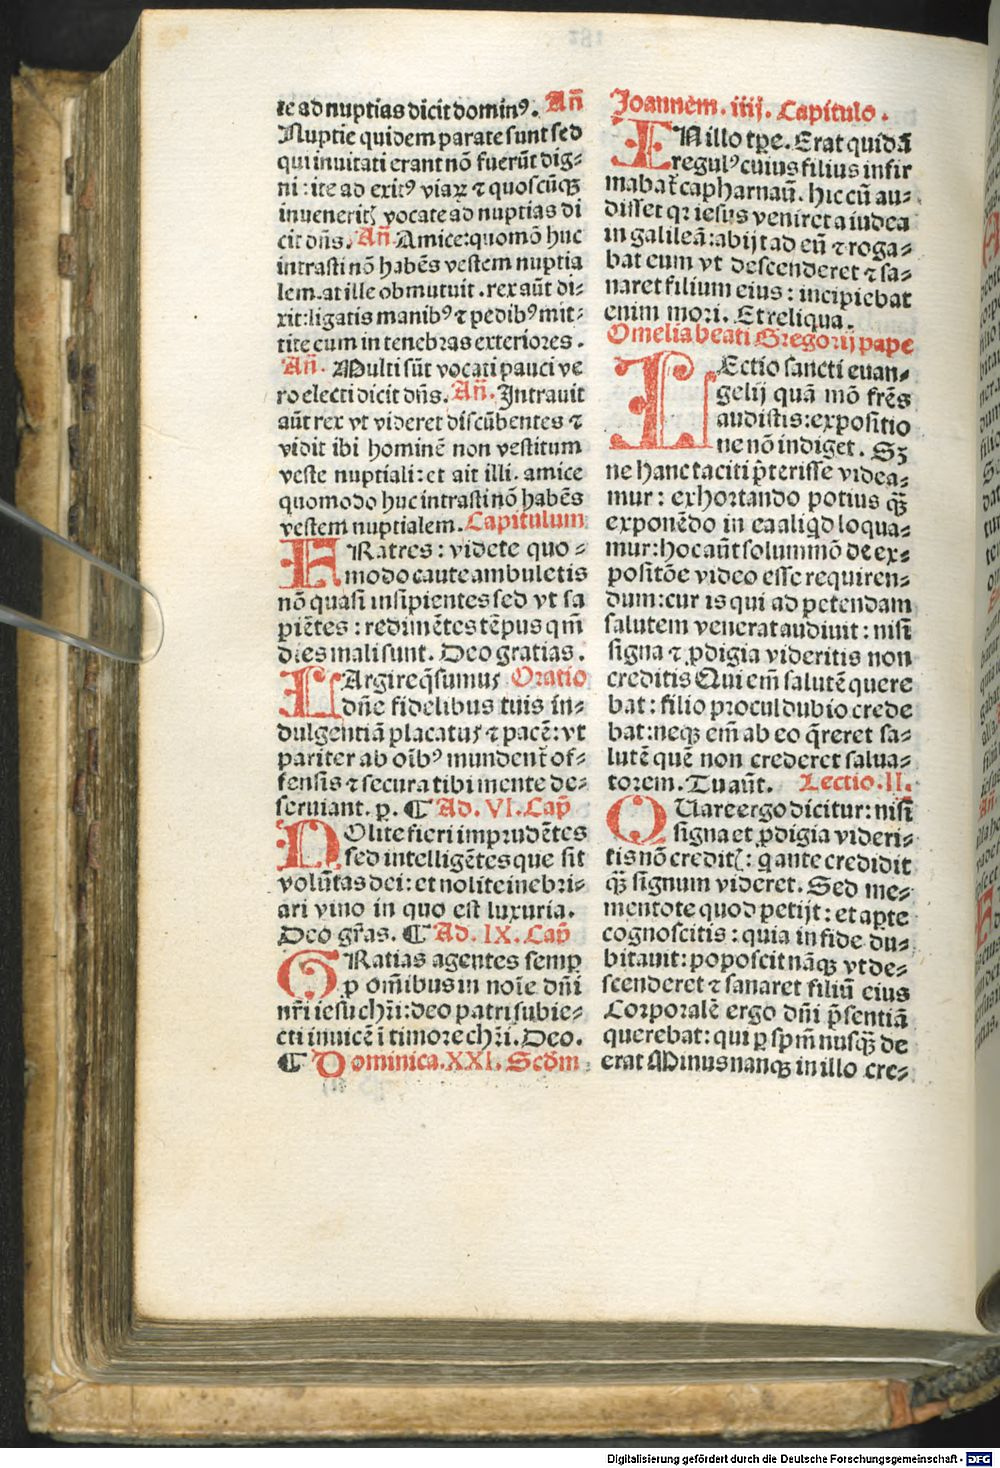 te ad nuptias dicit dominꝰ. Añ
Nuptie quidem parate sunt sed
qui inuitati erant nō fuerūt dig-
ni: ite ad exitꝰ viaꝝ ⁊ quoscūqꝫ
inueneritꝭ vocate ad nuptias di
cit dñs. Añ. Amice: quomō huc
intrasti nō habēs vestem nuptia
lem. at ille obmutuit. rex aūt di-
xit: ligatis manibꝰ ⁊ pedibꝰ mit-
tite eum in tenebras exteriores.
Añ. Multi sūt vocati pauci ve
ro electi dicit dñs. Añ. Intrauit
aūt rex vt videret discūbentes ⁊
vidit ibi hominē non vestitum
veste nuptiali: et ait illi. amice
quomodo huc intrasti nō habēs
vestem nuptialem. Capitulum
FRatres: videte quo-
modo caute ambuletis
nō quasi insipientes sed vt sa
piētes: redimētes tēpus qm̄
dies mali sunt. Deo gratias.
LArgire q̄sumus Oratio
dñe fidelibus tuis in-
dulgentiā placatus ⁊ pacē: vt
pariter ab oībꝰ mundent᷑ of-
fensis ⁊ secura tibi mente de-
seruiant. ꝑ. ¶ Ad. VI. Cap̄
NOlite fieri imprudētes
sed intelligētes que sit
volūtas dei: et nolite inebri-
ari vino in quo est luxuria.
Deo gr̄as. ¶ Ad. IX. Cap̄
GRatias agentes semꝑ
ꝓ om̄ibus in noīe dñi
nr̄i iesu chr̄i: deo patri subie-
cti inuicē ī timore chr̄i. Deo.
¶ Dominica. XXI. Scd̄m
Joannem. iiij. Capitulo.
IN illo tꝑe. Erat quidā
regulꝰ cuius filius infir
mabat᷑ capharnaū. hic cū au-
disset qꝛ iesus veniret a iudea
in galileā: abijt ad eū ⁊ roga-
bat eum vt descenderet ⁊ sa-
naret filium eius: incipiebat
enim mori. Et reliqua.
Omelia beati Gregorij pape
LEctio sancti euan-
gelij quā mō fr̄es
audistis: expositio
ne nō indiget. Sꝫ
ne hanc taciti p̄terisse videa-
mur: exhortando potius qꝫ̄
exponēdo in ea aliqd loqua-
mur: hoc aūt solummō de ex-
positōe video esse requiren-
dum: cur is qui ad petendam
salutem venerat audiuit: nisi
signa ⁊ ꝓdigia videritis non
creditis Qui em̄ salutē quere
bat: filio procul dubio crede
bat: neqꝫ em̄ ab eo q̄reret sa-
lutē quē non crederet salua-
torem. Tu aūt. Lectio. II.
QUare ergo dicitur: nisi
signa et ꝓdigia videri-
tis nō creditꝭ: q ante credidit
qꝫ̄ signum videret. Sed me-
mentote quod petijt: et aꝑte
cognoscitis: quia in fide du-
bitauit: poposcit nāqꝫ vt de-
scenderet ⁊ sanaret filiū eius
Corporalē ergo dñi p̄sentiā
querebat: qui ꝑ spm̄ nusqꝫ̄ de
erat Minus nanqꝫ in illo cre-
Digitalisierung gefördert durch die Deutsche Forschungsgemeinschaft - DFG